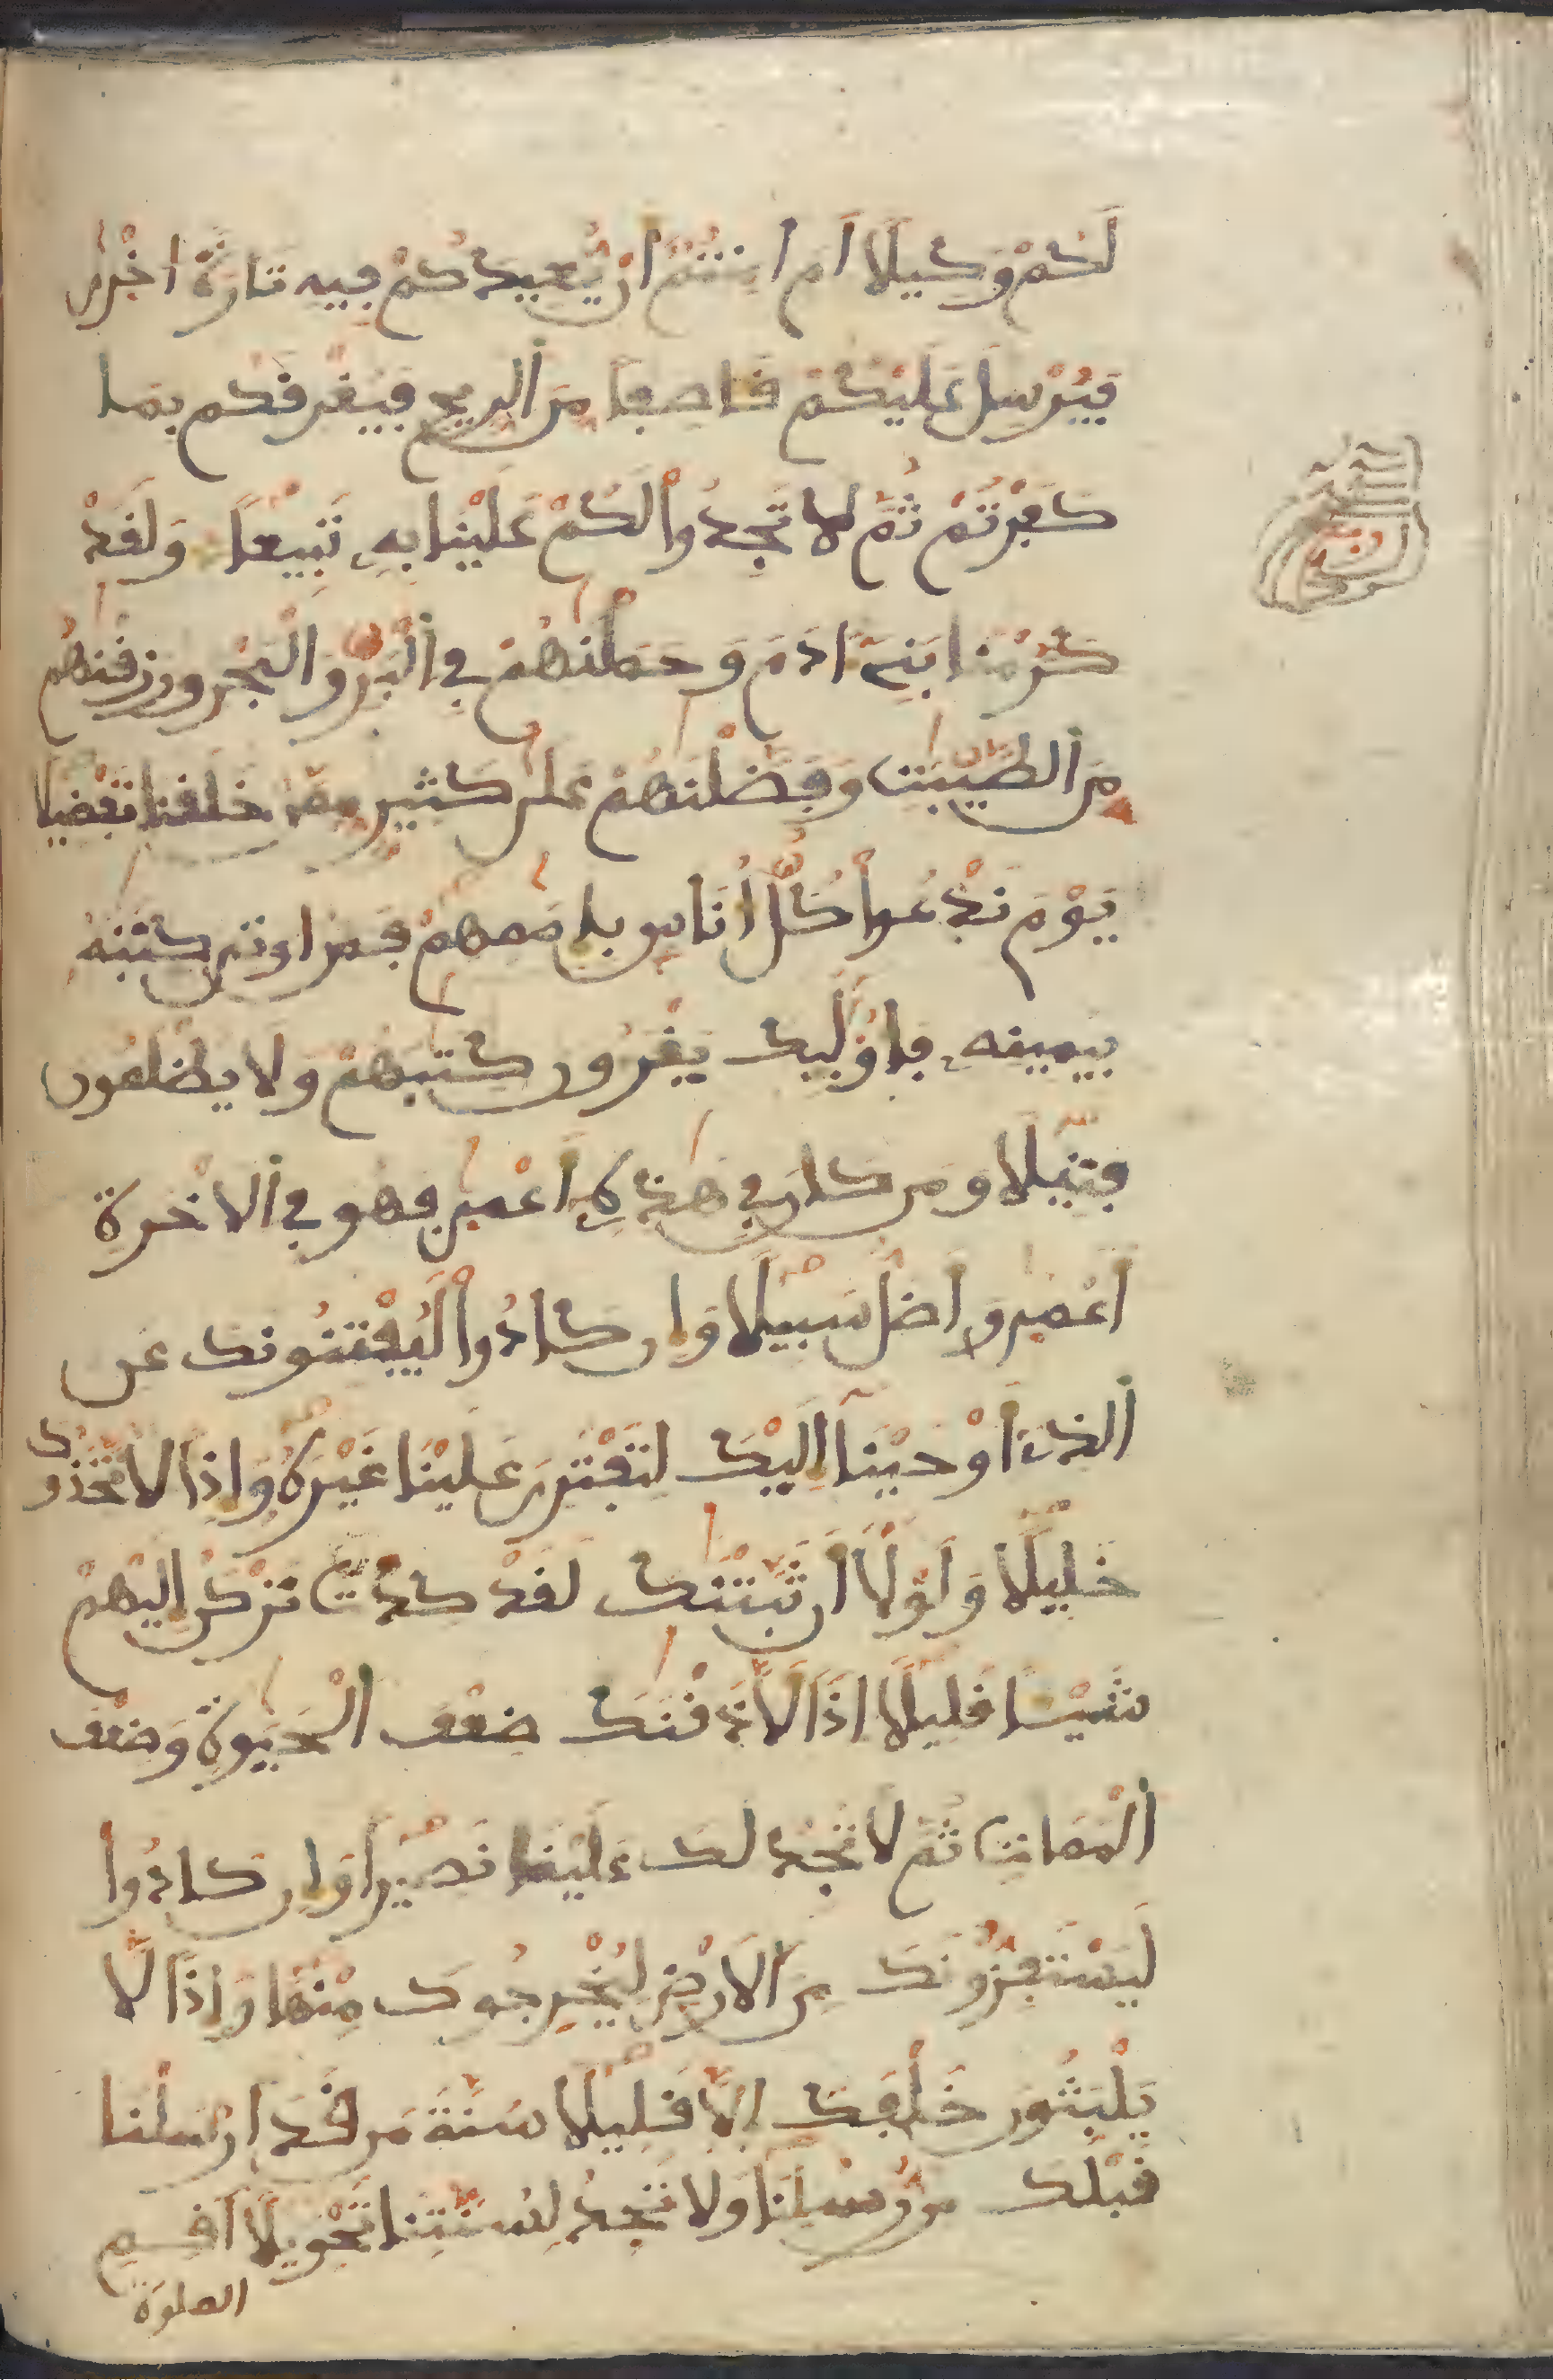 لَكُمْ وَكِيلًا اَمَ امِنتُمُ أَنْ يُّعِيدَكُمْ فِيهِ تَارَةً اخْرٜىٰ
فَيُرْسِلَ عَلَيْكُمْ قَاصِفًا مِّنَ ألرِّيحِ فَيُغْرِقَكُم بِمَا
كَفَرْتُمْ ثُمَّ لَا تَجِدُواْ لَكُمْ عَلَيْنَا بِهِۦ تَبِيعًا وَلَقَدْ
كَرَّمْنَا بَنِےٓ ءَادَمَ وَحَمَلْنَٰهُمْ فِے اِ۬لْبَرِّ وَالْبَحْرِ وَرَزَقْنَٰهُم
مِّنَ ألطَّيِّبَٰتِ وَفَضَّلْنَٰهُمْ عَلَىٰ كَثِيرٍ مِّمَّنْ خَلَقْنَا تَفْضِيلًا
يَوْمَ نَدْعُواْ كُلَّ أُنَاسٍ بِإِمَٰمِهِمْ فَمَنُ اوتِىَ كِتَٰبَهُۥ
بِيَمِينِهِۦ فَأُوْلَٰٓئِكَ يَقْرَءُونَ كِتَٰبَهُمْ وَلَا يُظْلَمُونَ
فَتِيلًا وَمَن كَانَ فِے هَٰذِهِۦٓ أَعْمٜىٰ فَهُوَ فِے اِ۬لَاخِرَةِ
أَعْمٜىٰ وَأَضَلُّ سَبِيلًا وَإِن كَادُواْ لَيَفْتِنُونَكَ عَنِ
ألذِےٓ أَوْحَيْنَآ إِلَيْكَ لِتَفْتَرِىَ عَلَيْنَا غَيْرَهُۥ وَإِذًا لَّاتَّخَذُوكَ
خَلِيلًا وَلَوْلَآ أَن ثَبَّتْنَٰكَ لَقَدْ كِدتَّ تَرْكَنُ إِلَيْهِمْ
شَيْـًٔا قَلِيلًا اِذًا لَّأَذَقْنَٰكَ ضِعْفَ ألْحَيَوٰةِ وَضِعْفَ
ألْمَمَاتِ ثُمَّ لَا تَجِدُ لَكَ عَلَيْنَا نَصِيرًا وَإِن كَادُواْ
لَيَسْتَفِزُّونَكَ مِنَ ألَارْضِ لِيُخْرِجُوكَ مِنْهَا وَإِذًا لَّا
يَلْبَثُونَ خَلْفَكَ إِلَّا قَلِيلًا سُنَّةَ مَن قَدَ ارْسَلْنَا
قَبْلَكَ مِن رُّسُلِنَا وَلَا تَجِدُ لِسُنَّتِنَا تَحْوِيلًا اَقِمِ
الصلوٰة